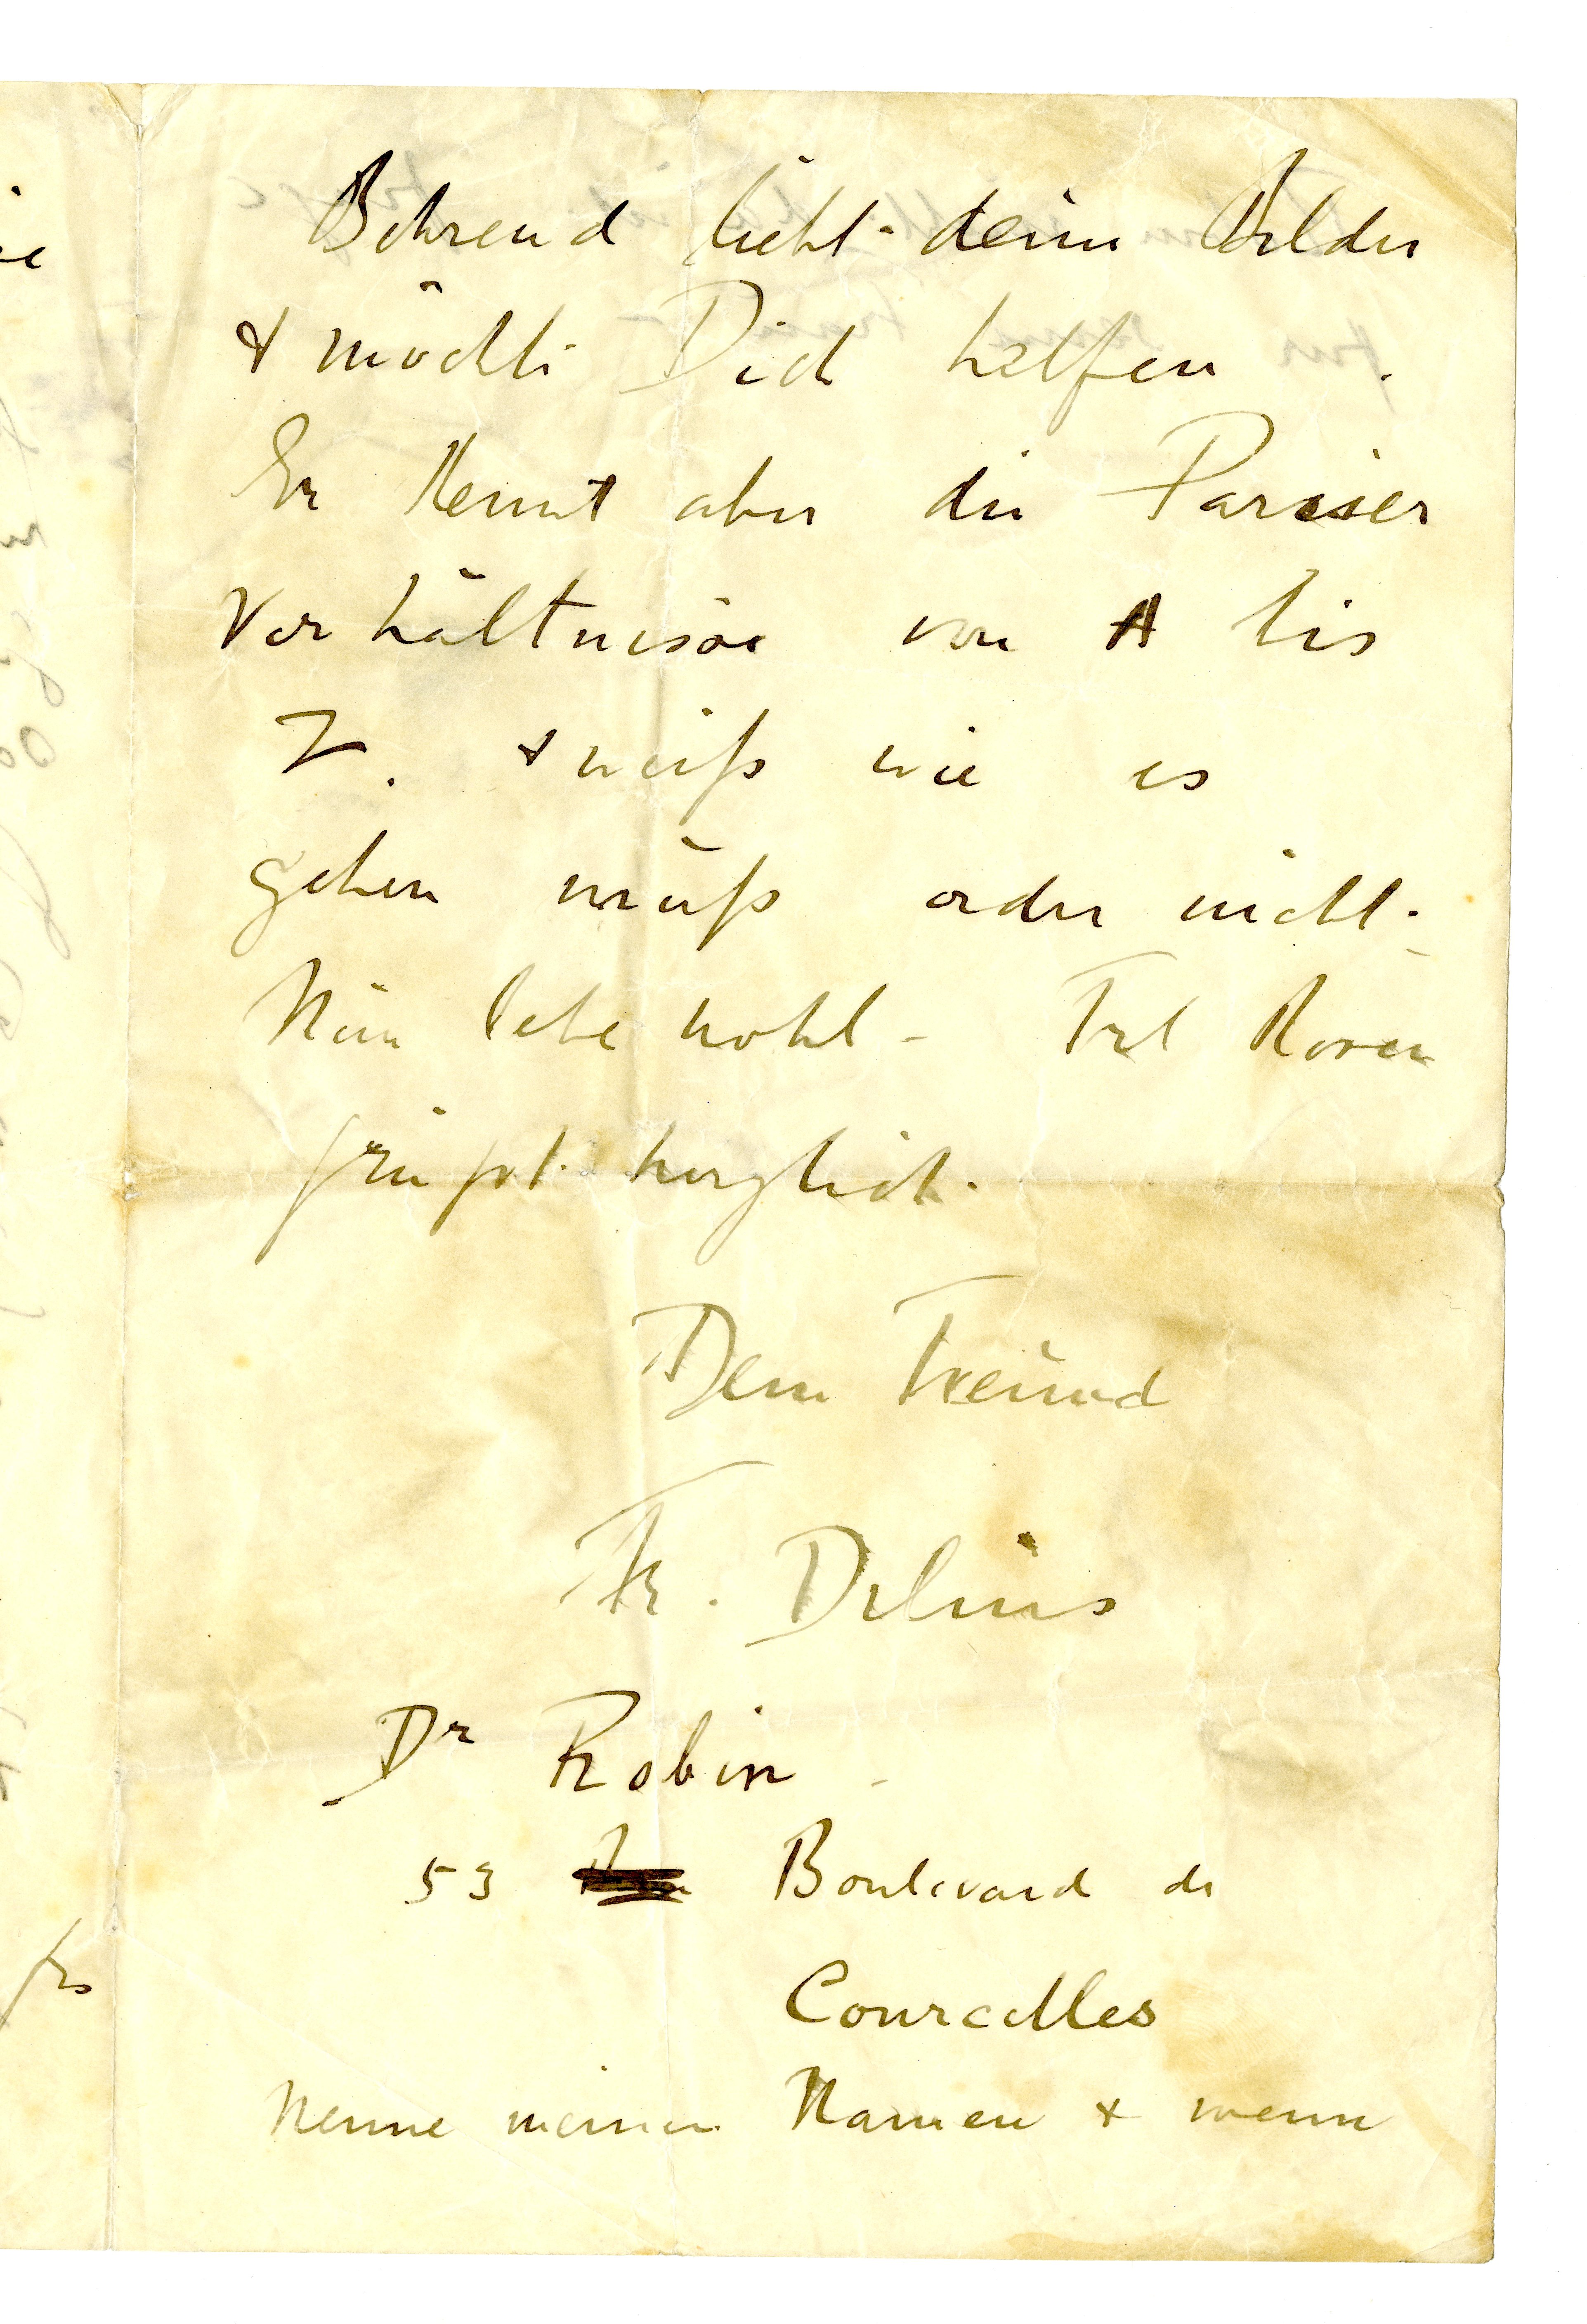 Behrend liebt deine Bilder
& möchte Dich helfen.
Er kennt aber die Pariser
Verhältnisse von A bis
Z. & weiß wie es
gehen muß oder nicht.
Nun lebe wohl - Frl Rosen
grüßt herzlich.
Dein Freund
Fr. Delius
Dr Robin
53 Boulevard de
Courcelles
Nenne meinen Namen & wenn